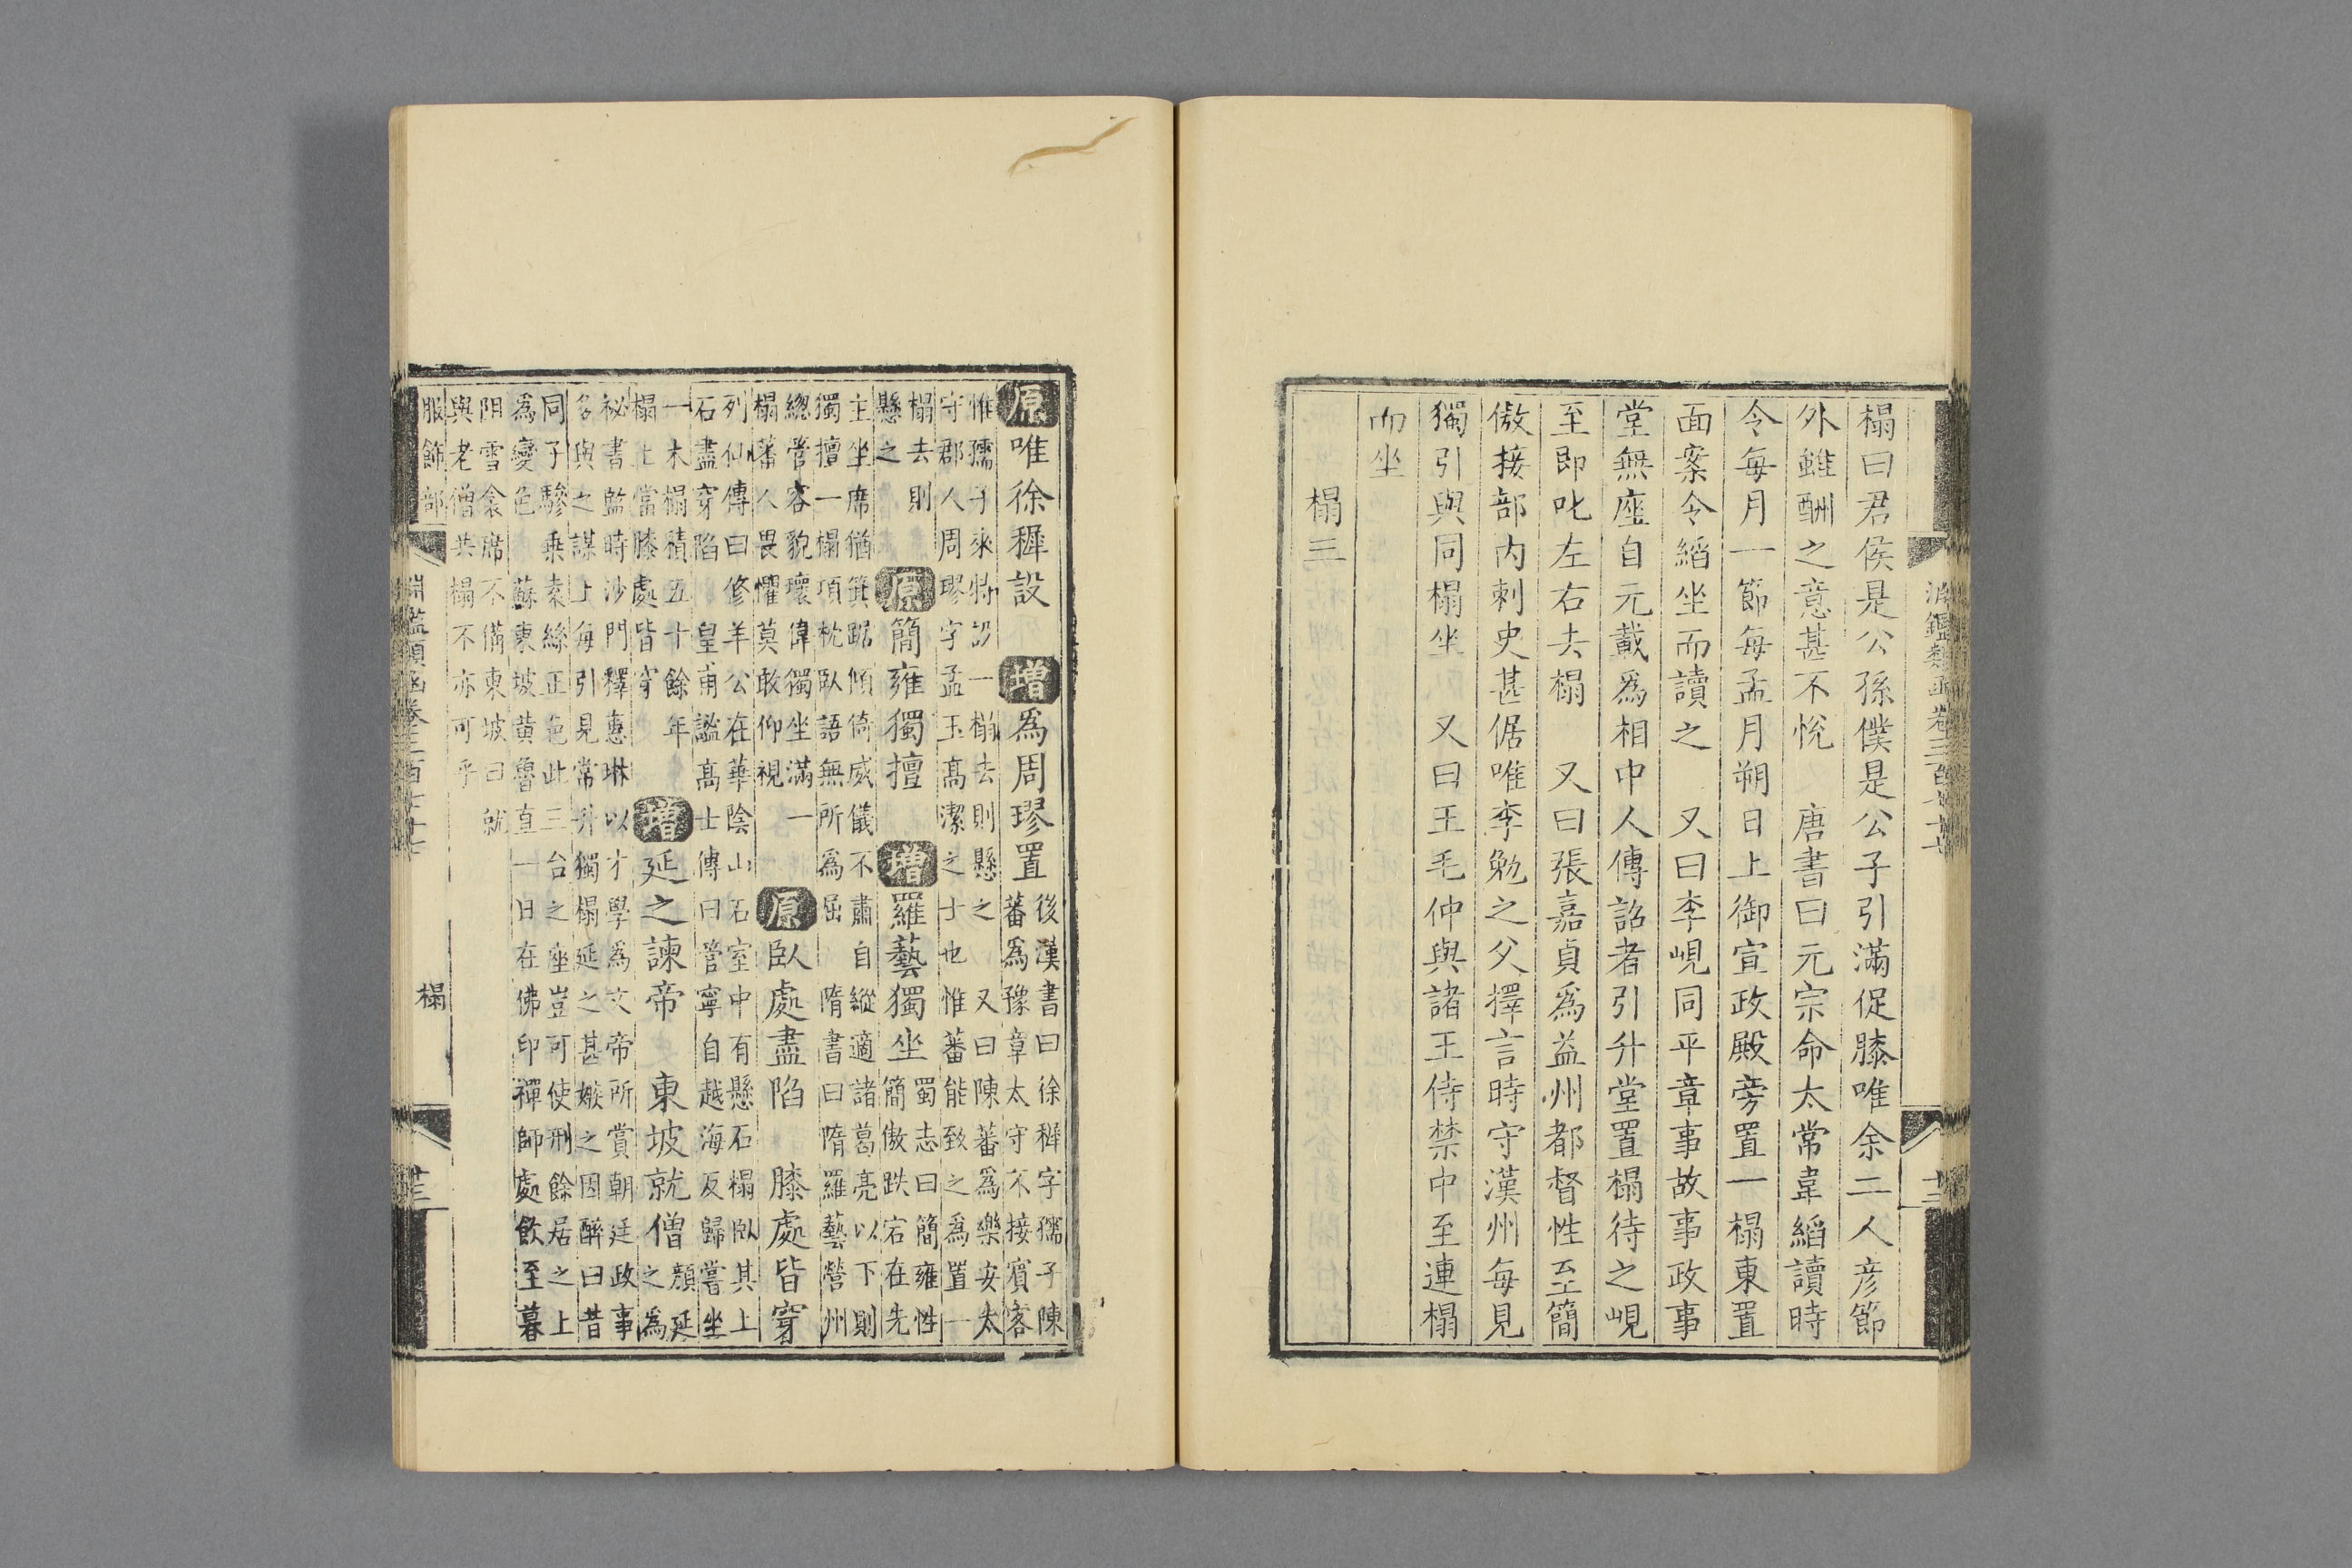 榻曰君侯是公孫僕是公子引滿促膝唯余二人彦節
外雖酬之意甚不悅　唐書曰元宗命太常韋縚讀時
令每月一節每孟月朔日上御宣政殿旁置一榻東置
面案令縚坐而讀之　又曰李峴同平章事故事政事
堂無座自元載爲相中人傳詔者引升堂置榻待之峴
至即叱左右去榻　又曰張嘉貞爲益州都督性至簡
傲接部内刺史甚倨唯李勉之父擇言時守漢州每見
獨引與同榻坐　又曰王毛仲與諸王侍禁中至連榻
而坐
榻三
原唯徐穉設　增爲周璆置
後漢書曰徐穉字孺子陳
蕃爲豫章太守不接賓客
惟孺子來特設一榻去則懸之　又曰陳蕃爲樂安太
守郡人周璆字孟玉高潔之士也惟蕃能致之爲置一
榻去則
懸之
原簡雍獨擅　增羅藝獨坐
蜀志曰簡雍性
簡傲跌宕在先
主坐席猶箕踞傾倚威儀不肅自縱適諸葛亮以下則
獨擅一榻項枕臥語無所爲屈　隋書曰隋羅藝營州
總管容貌瓌偉獨坐滿一
榻蕃人畏懼莫敢仰視
原臥處盡陷　膝處皆穿
列仙傳曰修羊公在華陰山石室中有懸石榻臥其上
石盡穿陷　皇甫謐高士傳曰管寧自越海及歸嘗坐
一木榻積五十餘年
榻上當膝處皆穿
增延之諫帝　東坡就僧
顏延
之爲
祕書監時沙門釋惠琳以才學爲文帝所賞朝廷政事
多與之謀上每引見常升獨榻延之甚嫉之因醉曰昔
同子驂乘袁絲正色此三台之座豈可使刑餘居之上
爲變色　蘇東坡黃魯直一日在佛印禪師處飲至暮
阻雪衾席不備東坡曰就
與老僧共榻不亦可乎
服飾部
淵鑑類函卷三百七十七
榻